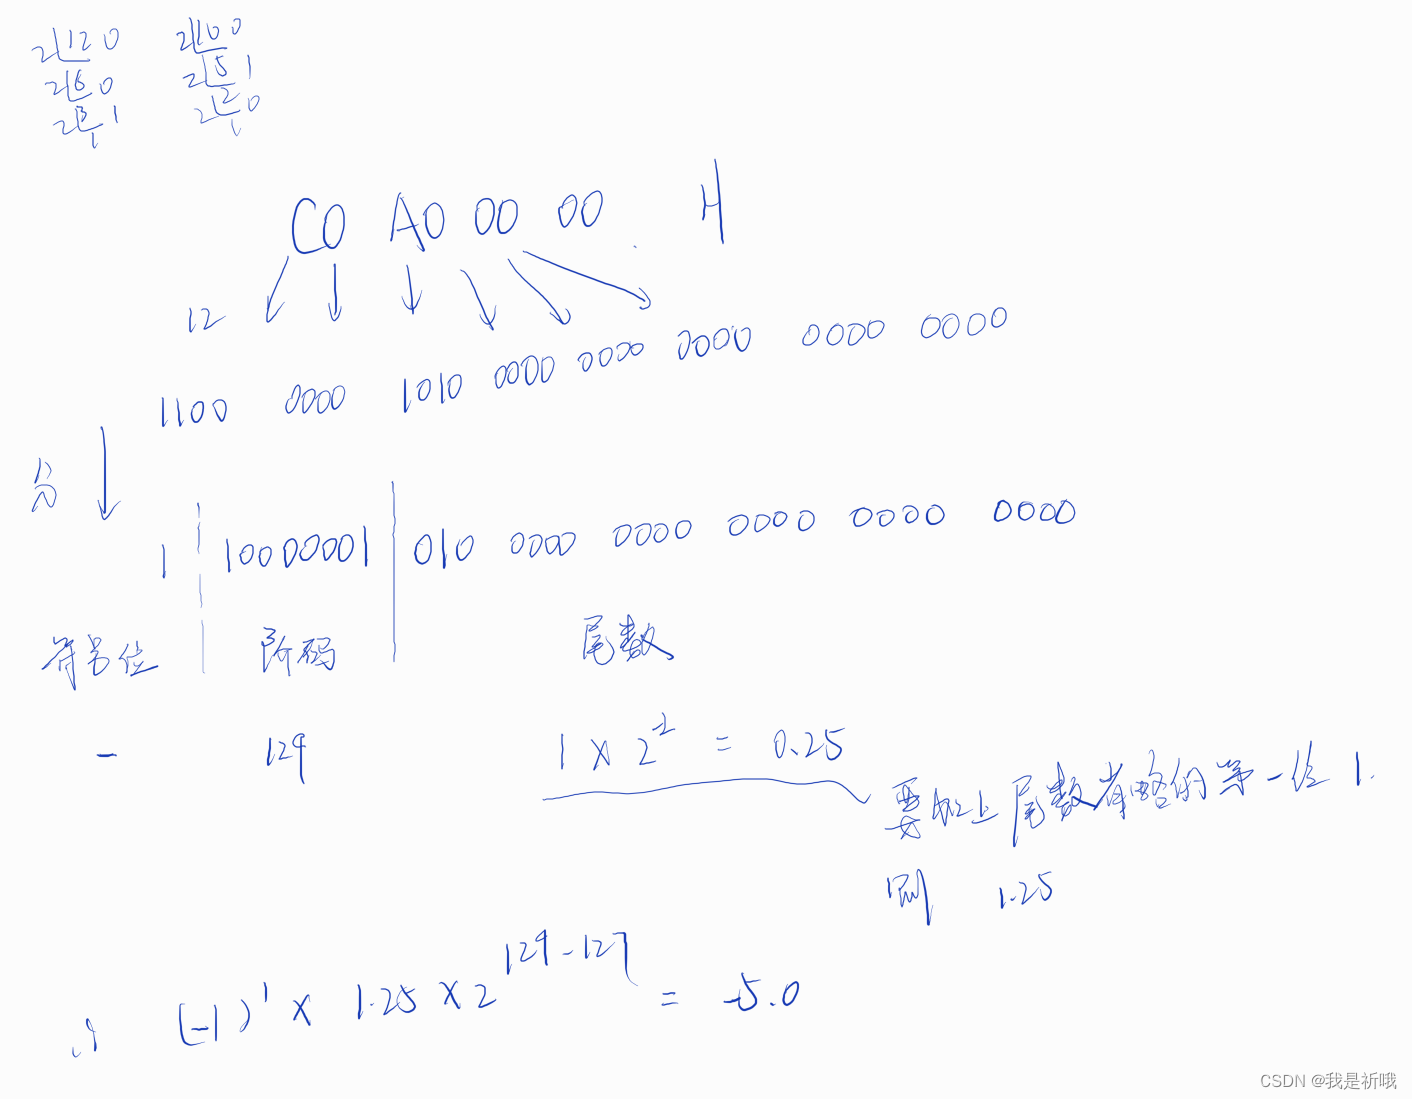 2 12 0 2 10 0
2 6 0 2 5 1
2 3 1 2 2 0
1 1
C0 A0 00 00 H
12
1100 0000 1010 0000 0000 0000 0000 0000
分
1 10000001 010 0000 0000 0000 0000 0000
符号位 阶码 尾数
- 129 1 × 2^-2 = 0.25
要加上尾数省略的第一位 1.
则 1.25
∴ (-1)^1 × 1.25 × 2^129-127 = -5.0
CSDN @我是祈哦